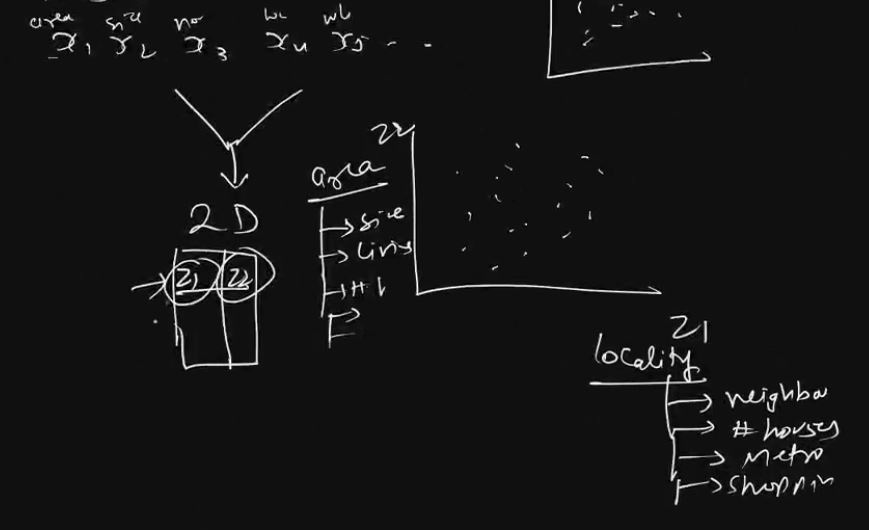 area size no
x₁ x₂ x₃ x₄ x₅ - - .
2D
z₁ z₂
area
size
living
#
z₂
z₁
locality
neighbou
# houses
Metro
Shoppin